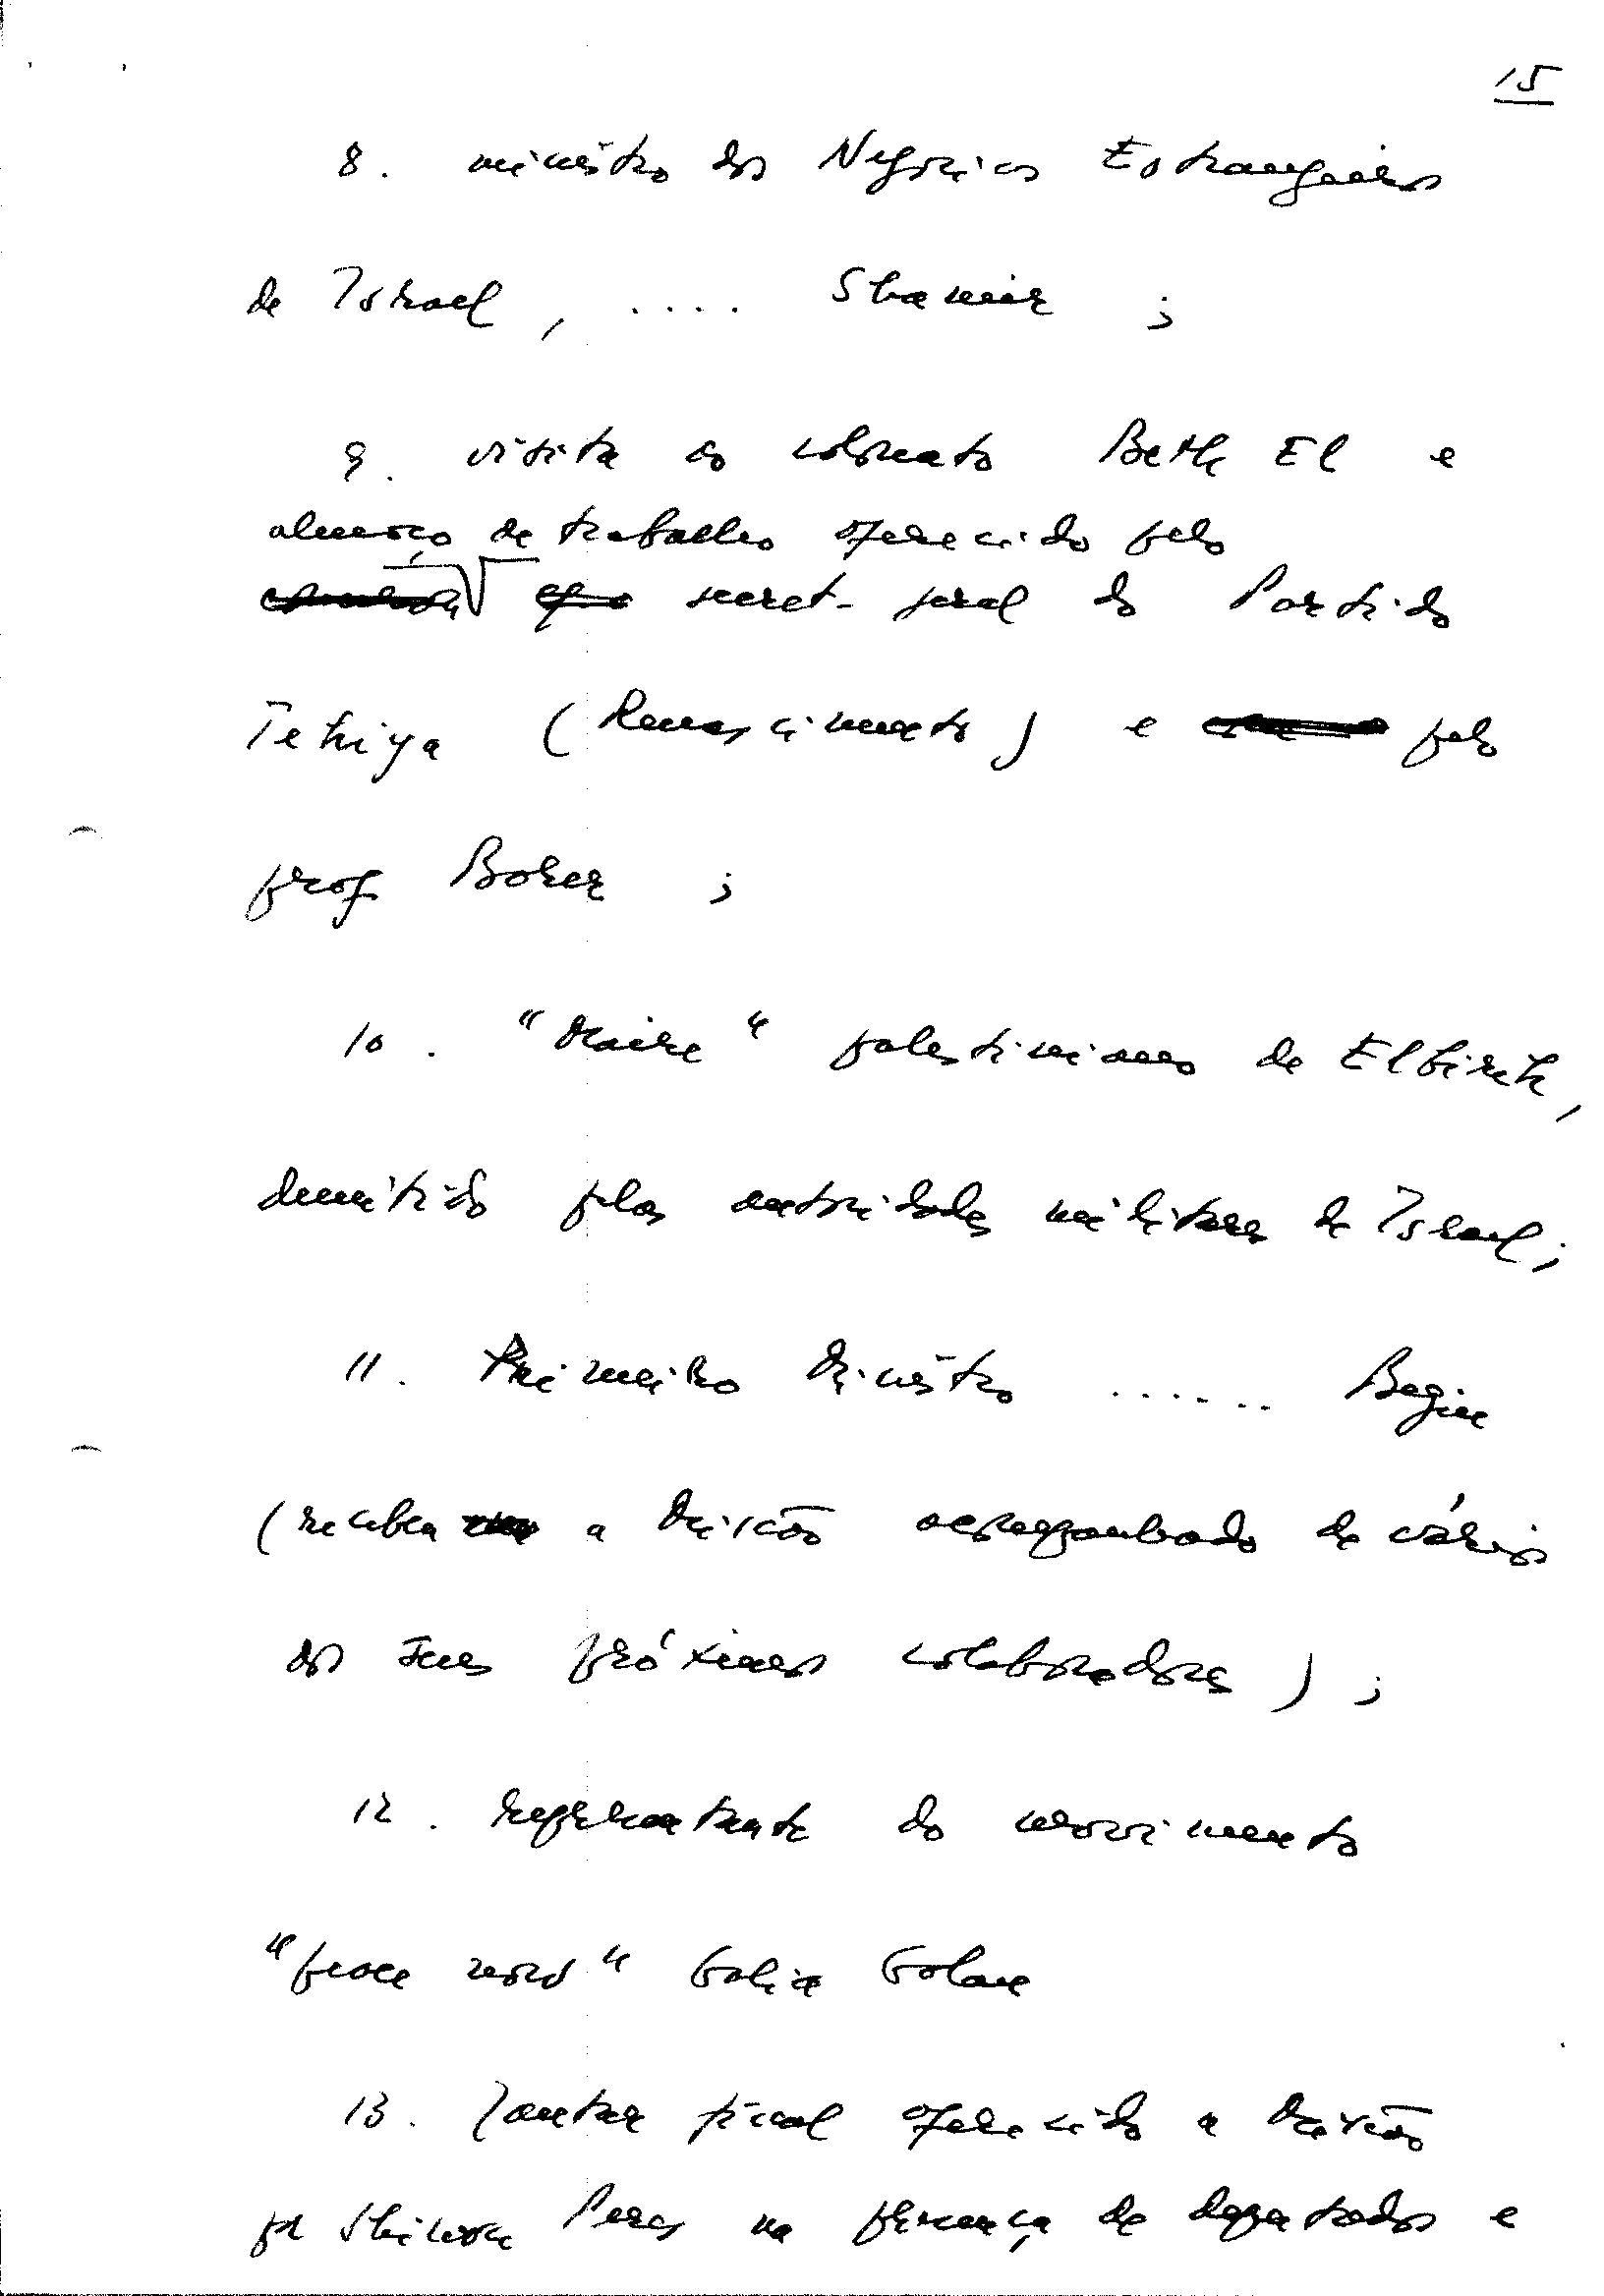 15
8. ministro dos Negócios Estrangeiros
de Israel, .... Shamir ;
9. visita ao colonato Beth El e
almoço de trabalho oferecido pelo
secret. geral do Partido
Tehiya (Renascimento) e pelo
prof Boker ;
10. "Maire" palestiniano de El bireh,
demitido pelas autoridades militares de Israel;
11. Primeiro Ministro ...... Begin
(recebeu a Missão acompanhado de vários
dos seus próximos colaboradores) ;
12. representante do movimento
"peace now" Galia Golan
13. Jantar final oferecido a Missão
por Shimon Peres na presença de deputados e